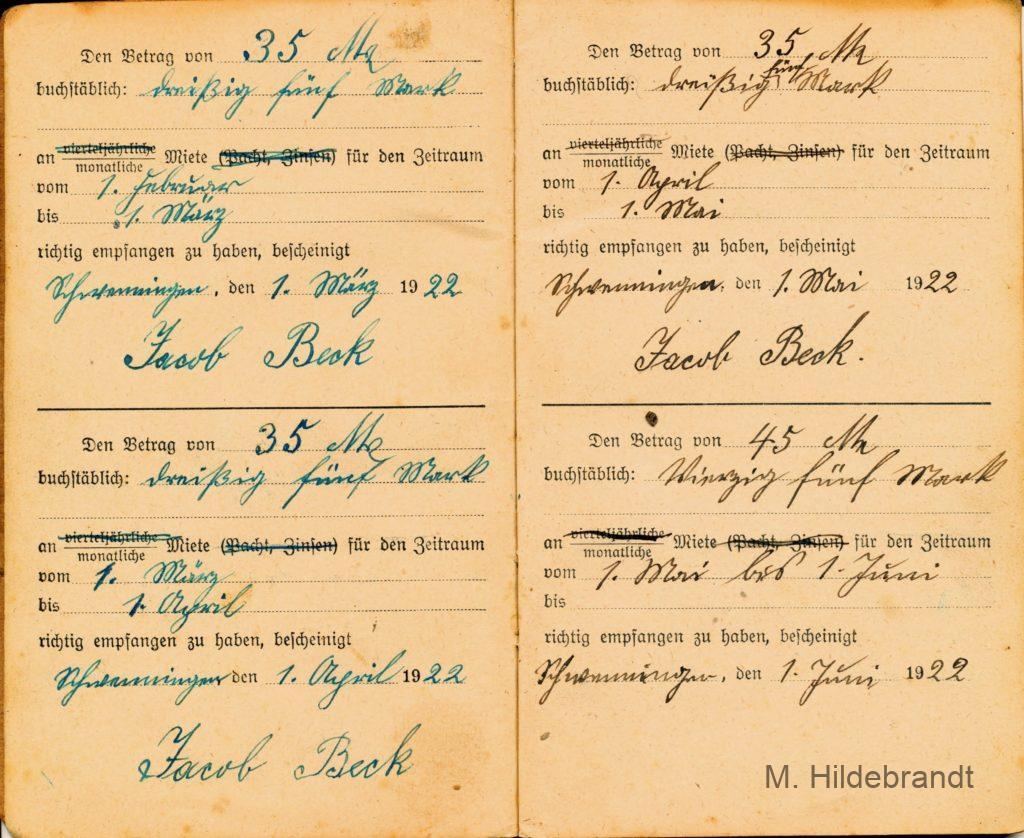 Den Betrag von 35 Mk
buchstäblich: dreißig fünf Mark
an vierteljährliche
monatliche Miete (Pacht, Zinsen) für den Zeitraum
vom 1. Februar
bis 1. März
richtig empfangen zu haben, bescheinigt
Schwenningen, den 1. März 1922
Jacob Beck
Den Betrag von 35 Mk
buchstäblich: dreißig fünf Mark
an vierteljährliche
monatliche Miete (Pacht, Zinsen) für den Zeitraum
vom 1. März
bis 1. April
richtig empfangen zu haben, bescheinigt
Schwenningen den 1. April 1922
Jacob Beck
Den Betrag von 35 Mk
buchstäblich: dreißig fünf Mark
an vierteljährliche
monatliche Miete (Pacht, Zinsen) für den Zeitraum
vom 1. April
bis 1. Mai
richtig empfangen zu haben, bescheinigt
Schwenningen, den 1. Mai 1922
Jacob Beck.
Den Betrag von 45 Mk
buchstäblich: Vierzig fünf Mark
an vierteljährliche
monatliche Miete (Pacht, Zinsen) für den Zeitraum
vom 1. Mai bis 1. Juni
bis
richtig empfangen zu haben, bescheinigt
Schwenningen, den 1. Juni 1922
M. Hildebrandt